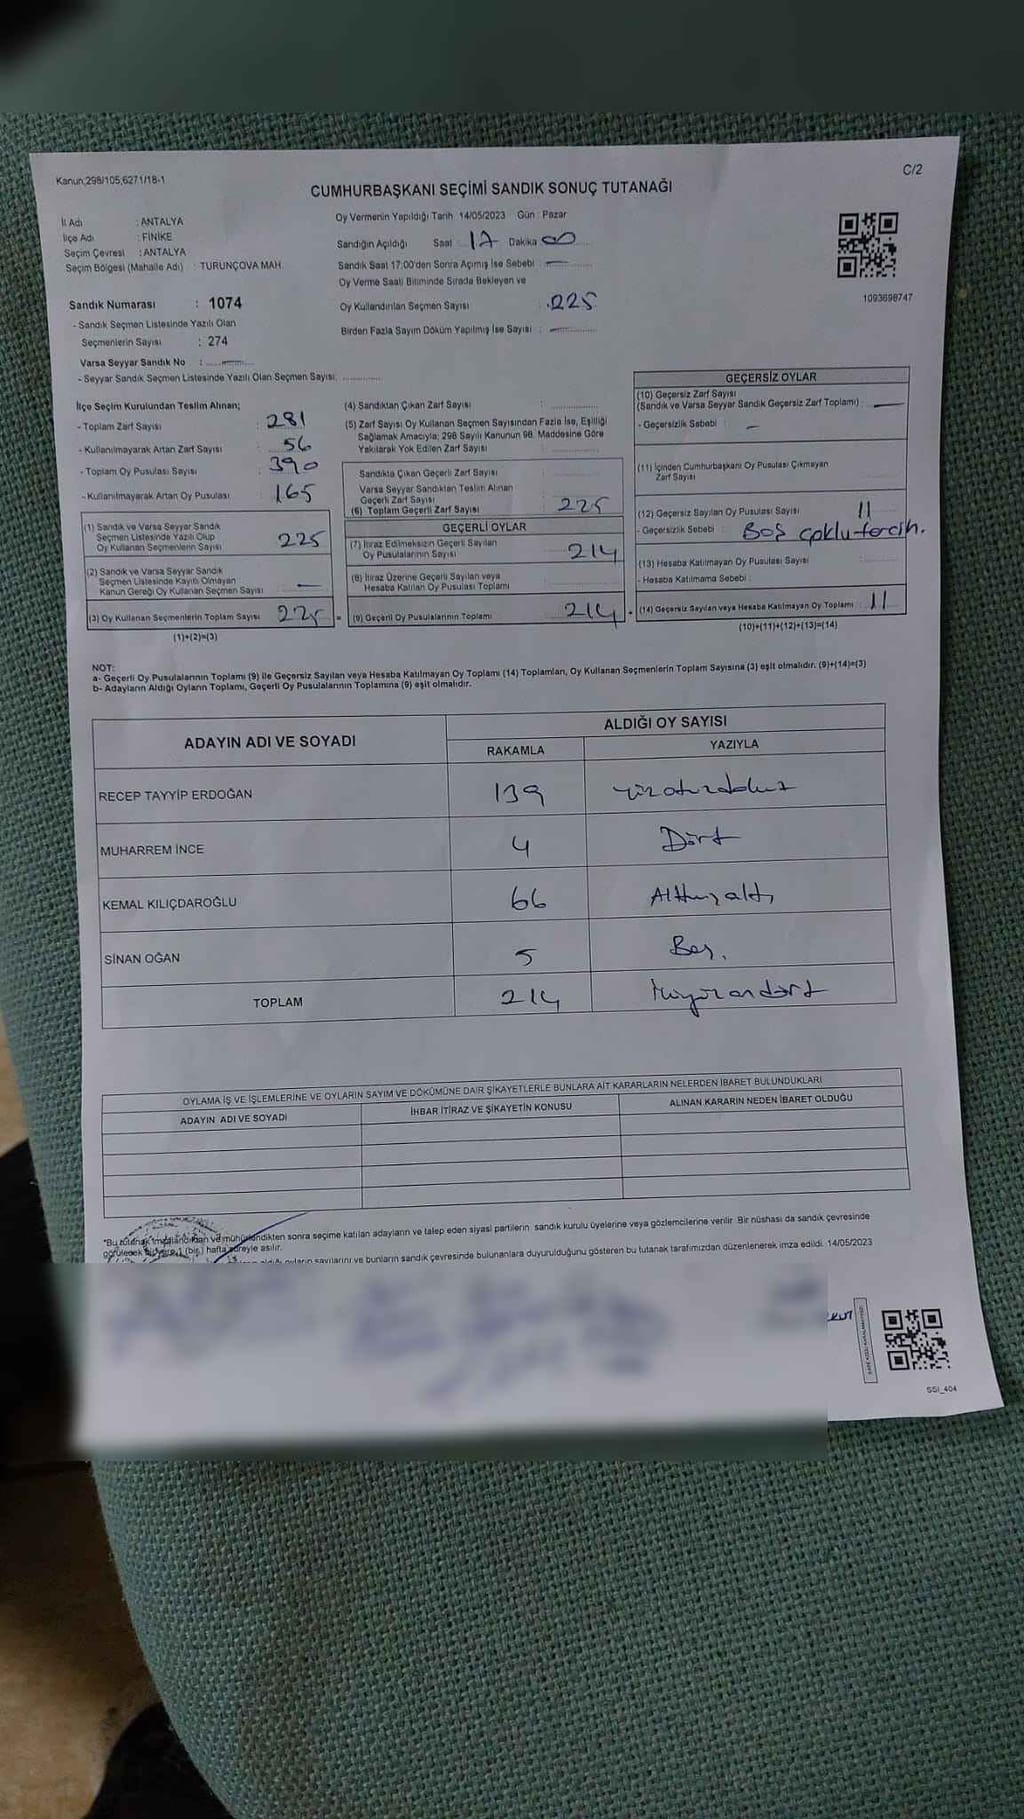 Kanun;298/105,6271/18-1
C/2
CUMHURBAŞKANI SEÇİMİ SANDIK SONUÇ TUTANAĞI
İl Adı : ANTALYA
İlçe Adı : FİNİKE
Seçim Çevresi : ANTALYA
Seçim Bölgesi (Mahalle Adı) : TURUNÇOVA MAH.
Sandık Numarası : 1074
- Sandık Seçmen Listesinde Yazılı Olan
Seçmenlerin Sayısı : 274
Varsa Seyyar Sandık No :
- Seyyar Sandık Seçmen Listesinde Yazılı Olan Seçmen Sayısı:
Oy Vermenin Yapıldığı Tarih 14/05/2023 Gün : Pazar
Sandığın Açıldığı Saat 17 Dakika 00
Sandık Saat 17:00'den Sonra Açmış İse Sebebi :
Oy Verme Saati Bitiminde Sırada Bekleyen ve
Oy Kullandırılan Seçmen Sayısı : 225
Birden Fazla Sayım Döküm Yapılmış İse Sayısı :
1093698747
İlçe Seçim Kurulundan Teslim Alınan;
- Toplam Zarf Sayısı : 281
- Kullanılmayarak Artan Zarf Sayısı : 56
- Toplam Oy Pusulası Sayısı : 390
- Kullanılmayarak Artan Oy Pusulası : 165
(1) Sandık ve Varsa Seyyar Sandık
Seçmen Listesinde Yazılı Olup
Oy Kullanan Seçmenlerin Sayısı : 225
(2) Sandık ve Varsa Seyyar Sandık
Seçmen Listesinde Kayıtlı Olmayan
Kanun Gereği Oy Kullanan Seçmen Sayısı :
(3) Oy Kullanan Seçmenlerin Toplam Sayısı 225 =
(1)+(2)=(3)
(4) Sandıktan Çıkan Zarf Sayısı :
(5) Zarf Sayısı Oy Kullanan Seçmen Sayısından Fazla İse, Eşitliği
Sağlamak Amacıyla; 298 Sayılı Kanunun 98. Maddesine Göre
Yakılarak Yok Edilen Zarf Sayısı :
Sandıkta Çıkan Geçerli Zarf Sayısı
Varsa Seyyar Sandıktan Teslim Alınan
Geçerli Zarf Sayısı
(6) Toplam Geçerli Zarf Sayısı : 225
GEÇERLİ OYLAR
(7) İtiraz Edilmeksizin Geçerli Sayılan
Oy Pusulalarının Sayısı : 214
(8) İtiraz Üzerine Geçerli Sayılan veya
Hesaba Katılan Oy Pusulası Toplamı
(9) Geçerli Oy Pusulalarının Toplamı : 214 +
GEÇERSİZ OYLAR
(10) Geçersiz Zarf Sayısı
(Sandık ve Varsa Seyyar Sandık Geçersiz Zarf Toplamı) :
- Geçersizlik Sebebi :
(11) İçinden Cumhurbaşkanı Oy Pusulası Çıkmayan
Zarf Sayısı
(12) Geçersiz Sayılan Oy Pusulası Sayısı : 11
- Geçersizlik Sebebi : Boş çoklu tercih.
(13) Hesaba Katılmayan Oy Pusulası Sayısı
- Hesaba Katılmama Sebebi :
(14) Geçersiz Sayılan veya Hesaba Katılmayan Oy Toplamı : 11
(10)+(11)+(12)+(13)=(14)
NOT:
a- Geçerli Oy Pusulalarının Toplamı (9) ile Geçersiz Sayılan veya Hesaba Katılmayan Oy Toplamı (14) Toplamları, Oy Kullanan Seçmenlerin Toplam Sayısına (3) eşit olmalıdır. (9)+(14)=(3)
b- Adayların Aldığı Oyların Toplamı, Geçerli Oy Pusulalarının Toplamına (9) eşit olmalıdır.
ADAYIN ADI VE SOYADI
ALDIĞI OY SAYISI
RAKAMLA YAZIYLA
RECEP TAYYİP ERDOĞAN 139 yüzotuzdokuz
MUHARREM İNCE 4 Dört
KEMAL KILIÇDAROĞLU 66 Altmışaltı
SİNAN OĞAN 5 Beş.
TOPLAM 214 ikiyüzondört
OYLAMA İŞ VE İŞLEMLERİNE VE OYLARIN SAYIM VE DÖKÜMÜNE DAİR ŞİKAYETLERLE BUNLARA AİT KARARLARIN NELERDEN İBARET BULUNDUKLARI
ADAYIN ADI VE SOYADI İHBAR İTİRAZ VE ŞİKAYETİN KONUSU ALINAN KARARIN NEDEN İBARET OLDUĞU
*Bu tutanak imzalandıktan ve mühürlendikten sonra seçime katılan adayların ve talep eden siyasi partilerin sandık kurulu üyelerine veya gözlemcilerine verilir. Bir nüshası da sandık çevresinde
görülecek bir yere 1 (bir) hafta süreyle asılır.
oyların sayılarını ve bunların sandık çevresinde bulunanlara duyurulduğunu gösteren bu tutanak tarafımızdan düzenlenerek imza edildi. 14/05/2023
SSI_404